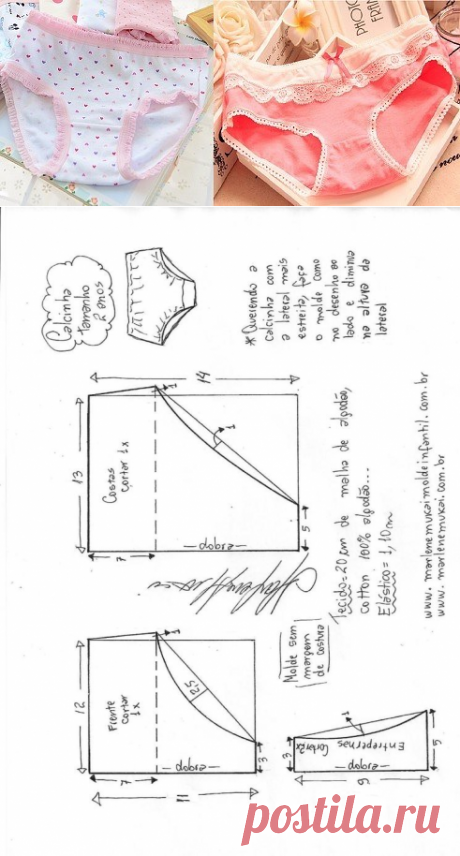 PHOTO
FRAN
Calcinha
tamanho
2 anos
* Querendo a
calcinha com
a lateral mais
estreita, faça
o molde como
no desenho ao
lado e diminua
na altura da
lateral
14
13
Costas
cortar 1x
7
1
1
5
dobra
Tecido = 20 cm de malha de algodão,
cotton 100% algodão...
Elástico = 1,10m
www.marlenemukaimoldeinfantil.com.br
www.marlenemukai.com.br
12
Frente
cortar
1x
7
1
2,5
3
dobra
11
Molde sem
margem
de costura
3
1
Entrepernas
Cortar 2x
dobra
5
9
postila.ru